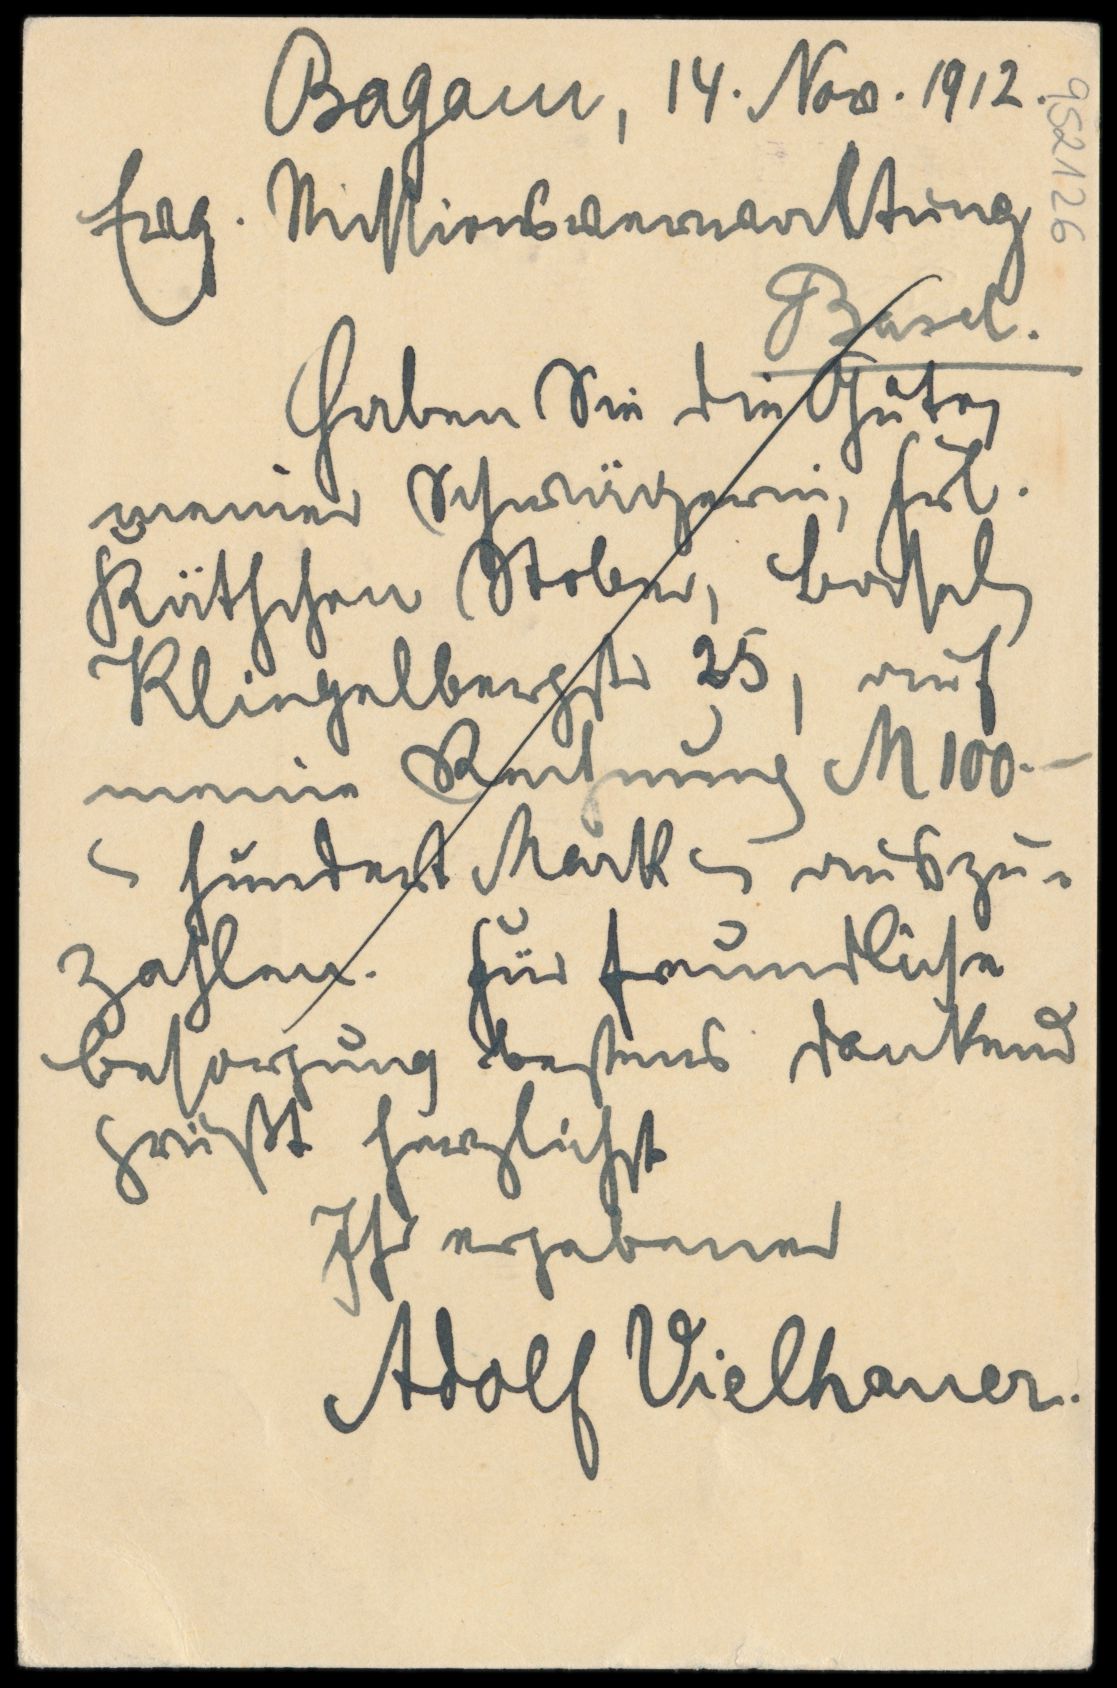 Bagam, 14. Nov. 1912.
952126
Evg. Missionsverwaltung
Basel.
Haben Sie die Güte,
meiner Schwägerin, Frl.
Käthchen Stober, Basel,
Klingelbergstr 25, auf
meine Rechnung M 100.-
- hundert Mark - auszu-
zahlen. Für freundliche
Besorgung bestens dankend
grüßt herzlichst
Ihr ergebener
Adolf Vielhauer.